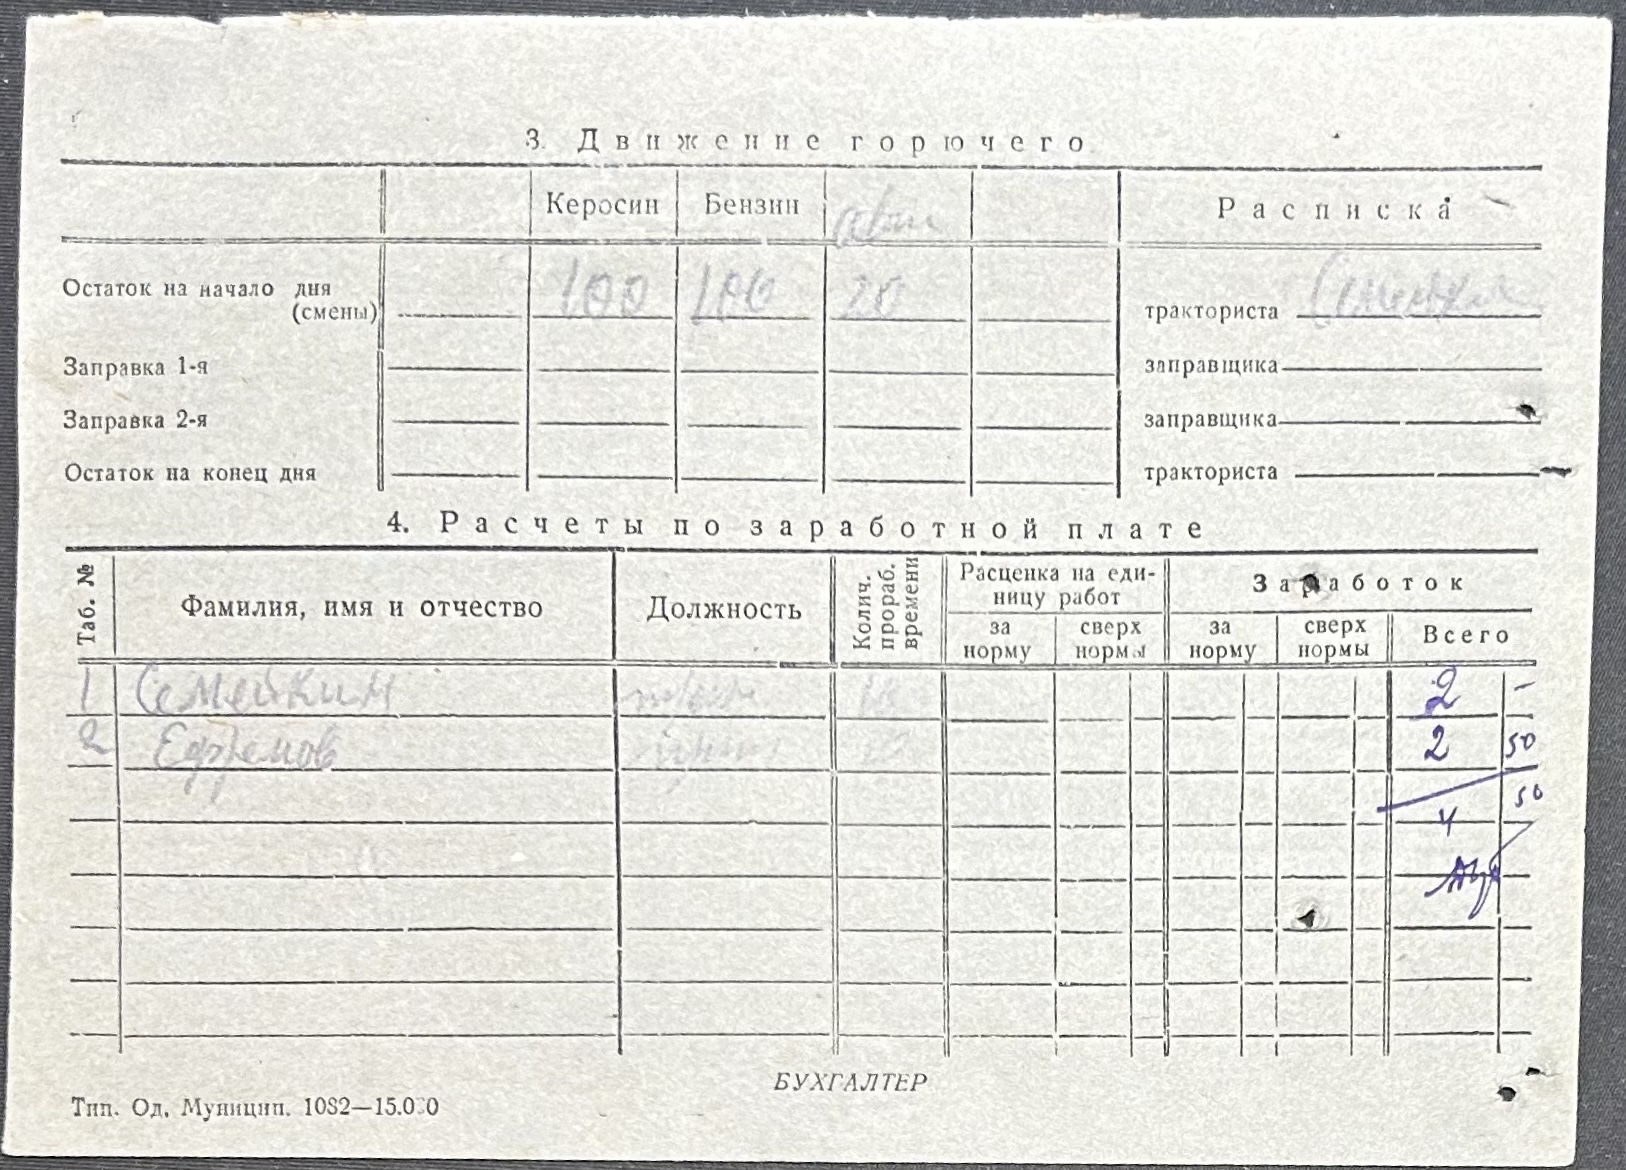 3. Движение горючего
Керосин Бензин Расписка
Остаток на начало дня (смены) 100 100 20 тракториста
Заправка 1-я заправщика
Заправка 2-я заправщика
Остаток на конец дня тракториста
4. Расчеты по заработной плате
Таб. № Фамилия, имя и отчество Должность Колич. прораб. времени Расценка на единицу работ Заработок
за норму сверх нормы за норму сверх нормы Всего
1 Семейкин 10 2 -
2 Ефремов 2 50
4 50
БУХГАЛТЕР
Тип. Од. Муницип. 1082—15.000